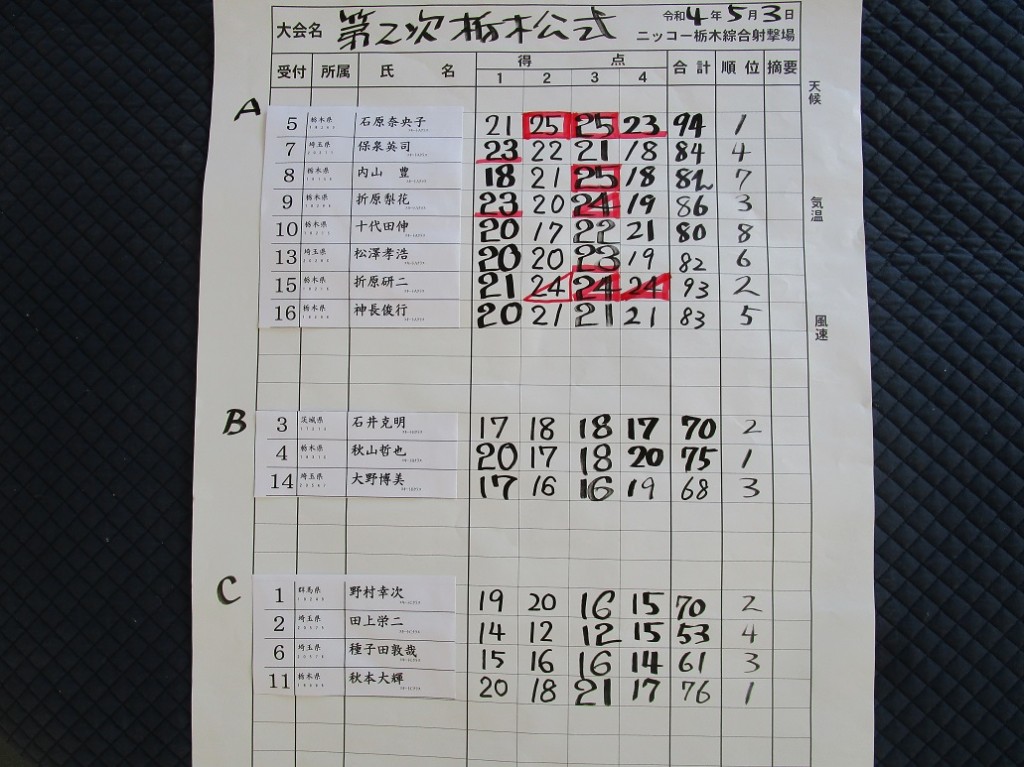 大会名 第2次栃木公式 令和4年5月3日
ニッコー栃木綜合射撃場
受付 所属 氏名 得点 合計 順位 摘要
1 2 3 4
天候
A
5 栃木県 石原奈央子 21 25 25 23 94 1
7 埼玉県 保泉英司 23 22 21 18 84 4
8 栃木県 内山 豊 18 21 25 18 82 7
気温
9 栃木県 折原梨花 23 20 24 19 86 3
10 栃木県 十代田伸 20 17 22 21 80 8
13 埼玉県 松澤孝浩 20 20 23 19 82 6
15 栃木県 折原研二 21 24 24 24 93 2
16 栃木県 神長俊行 20 21 21 21 83 5
風速
B
3 茨城県 石井克明 17 18 18 17 70 2
4 栃木県 秋山哲也 20 17 18 20 75 1
14 埼玉県 大野博美 17 16 16 19 68 3
C
1 群馬県 野村幸次 19 20 16 15 70 2
2 埼玉県 田上栄二 14 12 12 15 53 4
6 埼玉県 種子田敦哉 15 16 16 14 61 3
11 栃木県 秋本大輝 20 18 21 17 76 1